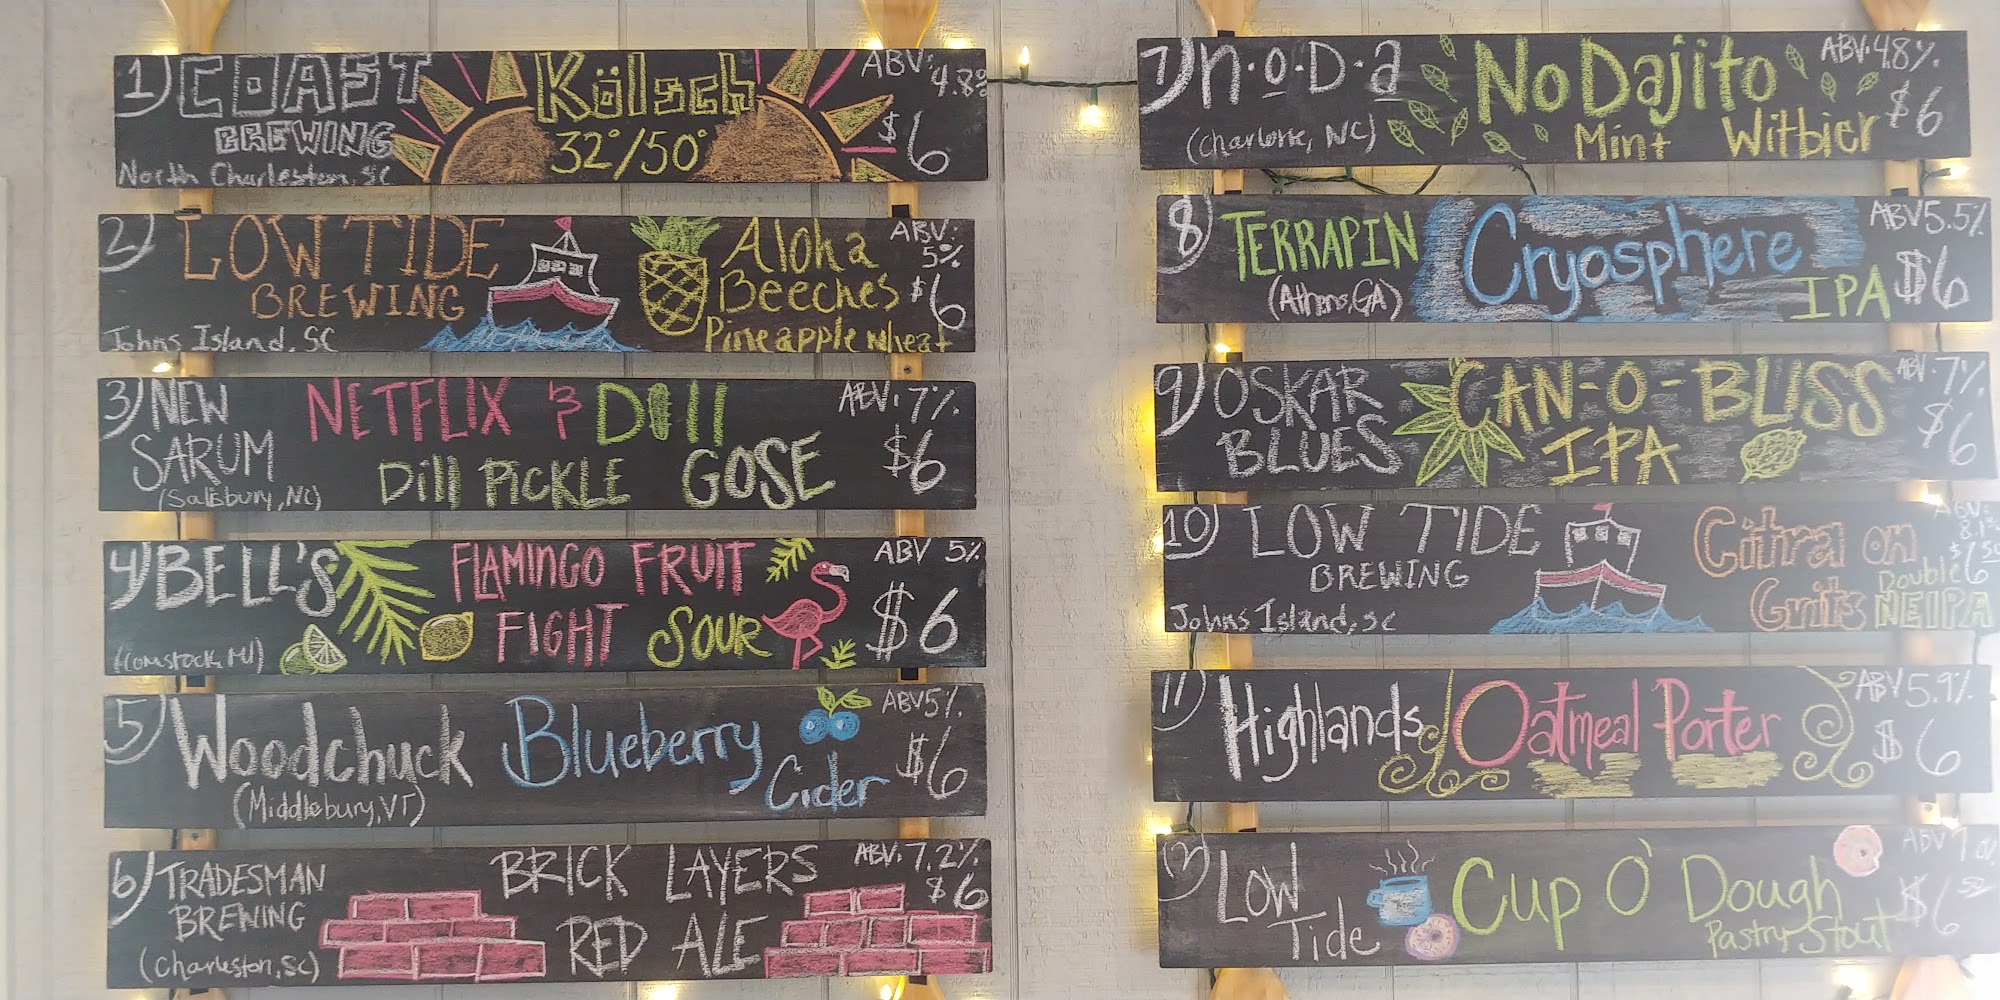 1) COAST Kölsch ABV: 4.8%
BREWING 32°/50° $6
North Charleston, SC
2) LOW TIDE Aloha ABV: 5%
BREWING Beeches $6
Johns Island, SC Pineapple Wheat
3) NEW NETFLIX & Dill ABV. 7%
SARUM Dill PICKLE GOSE $6
(Salisbury, NC)
4) BELL'S FLAMINGO FRUIT ABV 5%
FIGHT SOUR $6
(Comstock, MI)
5) Woodchuck Blueberry ABV 5%
Cider $6
(Middlebury, VT)
6) TRADESMAN BRICK LAYERS ABV. 7.2%
BREWING RED ALE $6
(Charleston, SC)
7) N.o.D.a NoDajito ABV. 4.8%
(Charlotte, NC) Mint Witbier $6
8) TERRAPIN Cryosphere ABV 5.5%
(Athens, GA) IPA $6
9) OSKAR CAN-O-BLISS ABV. 7%
BLUES IPA $6
10) LOW TIDE Citra on ABV: 8.1%
BREWING Grits Double $6.50
Johns Island, SC NEIPA
11) Highlands Oatmeal Porter ABV 5.9%
$6
12) Low Cup O' Dough ABV
Tide Pastry Stout $6.50